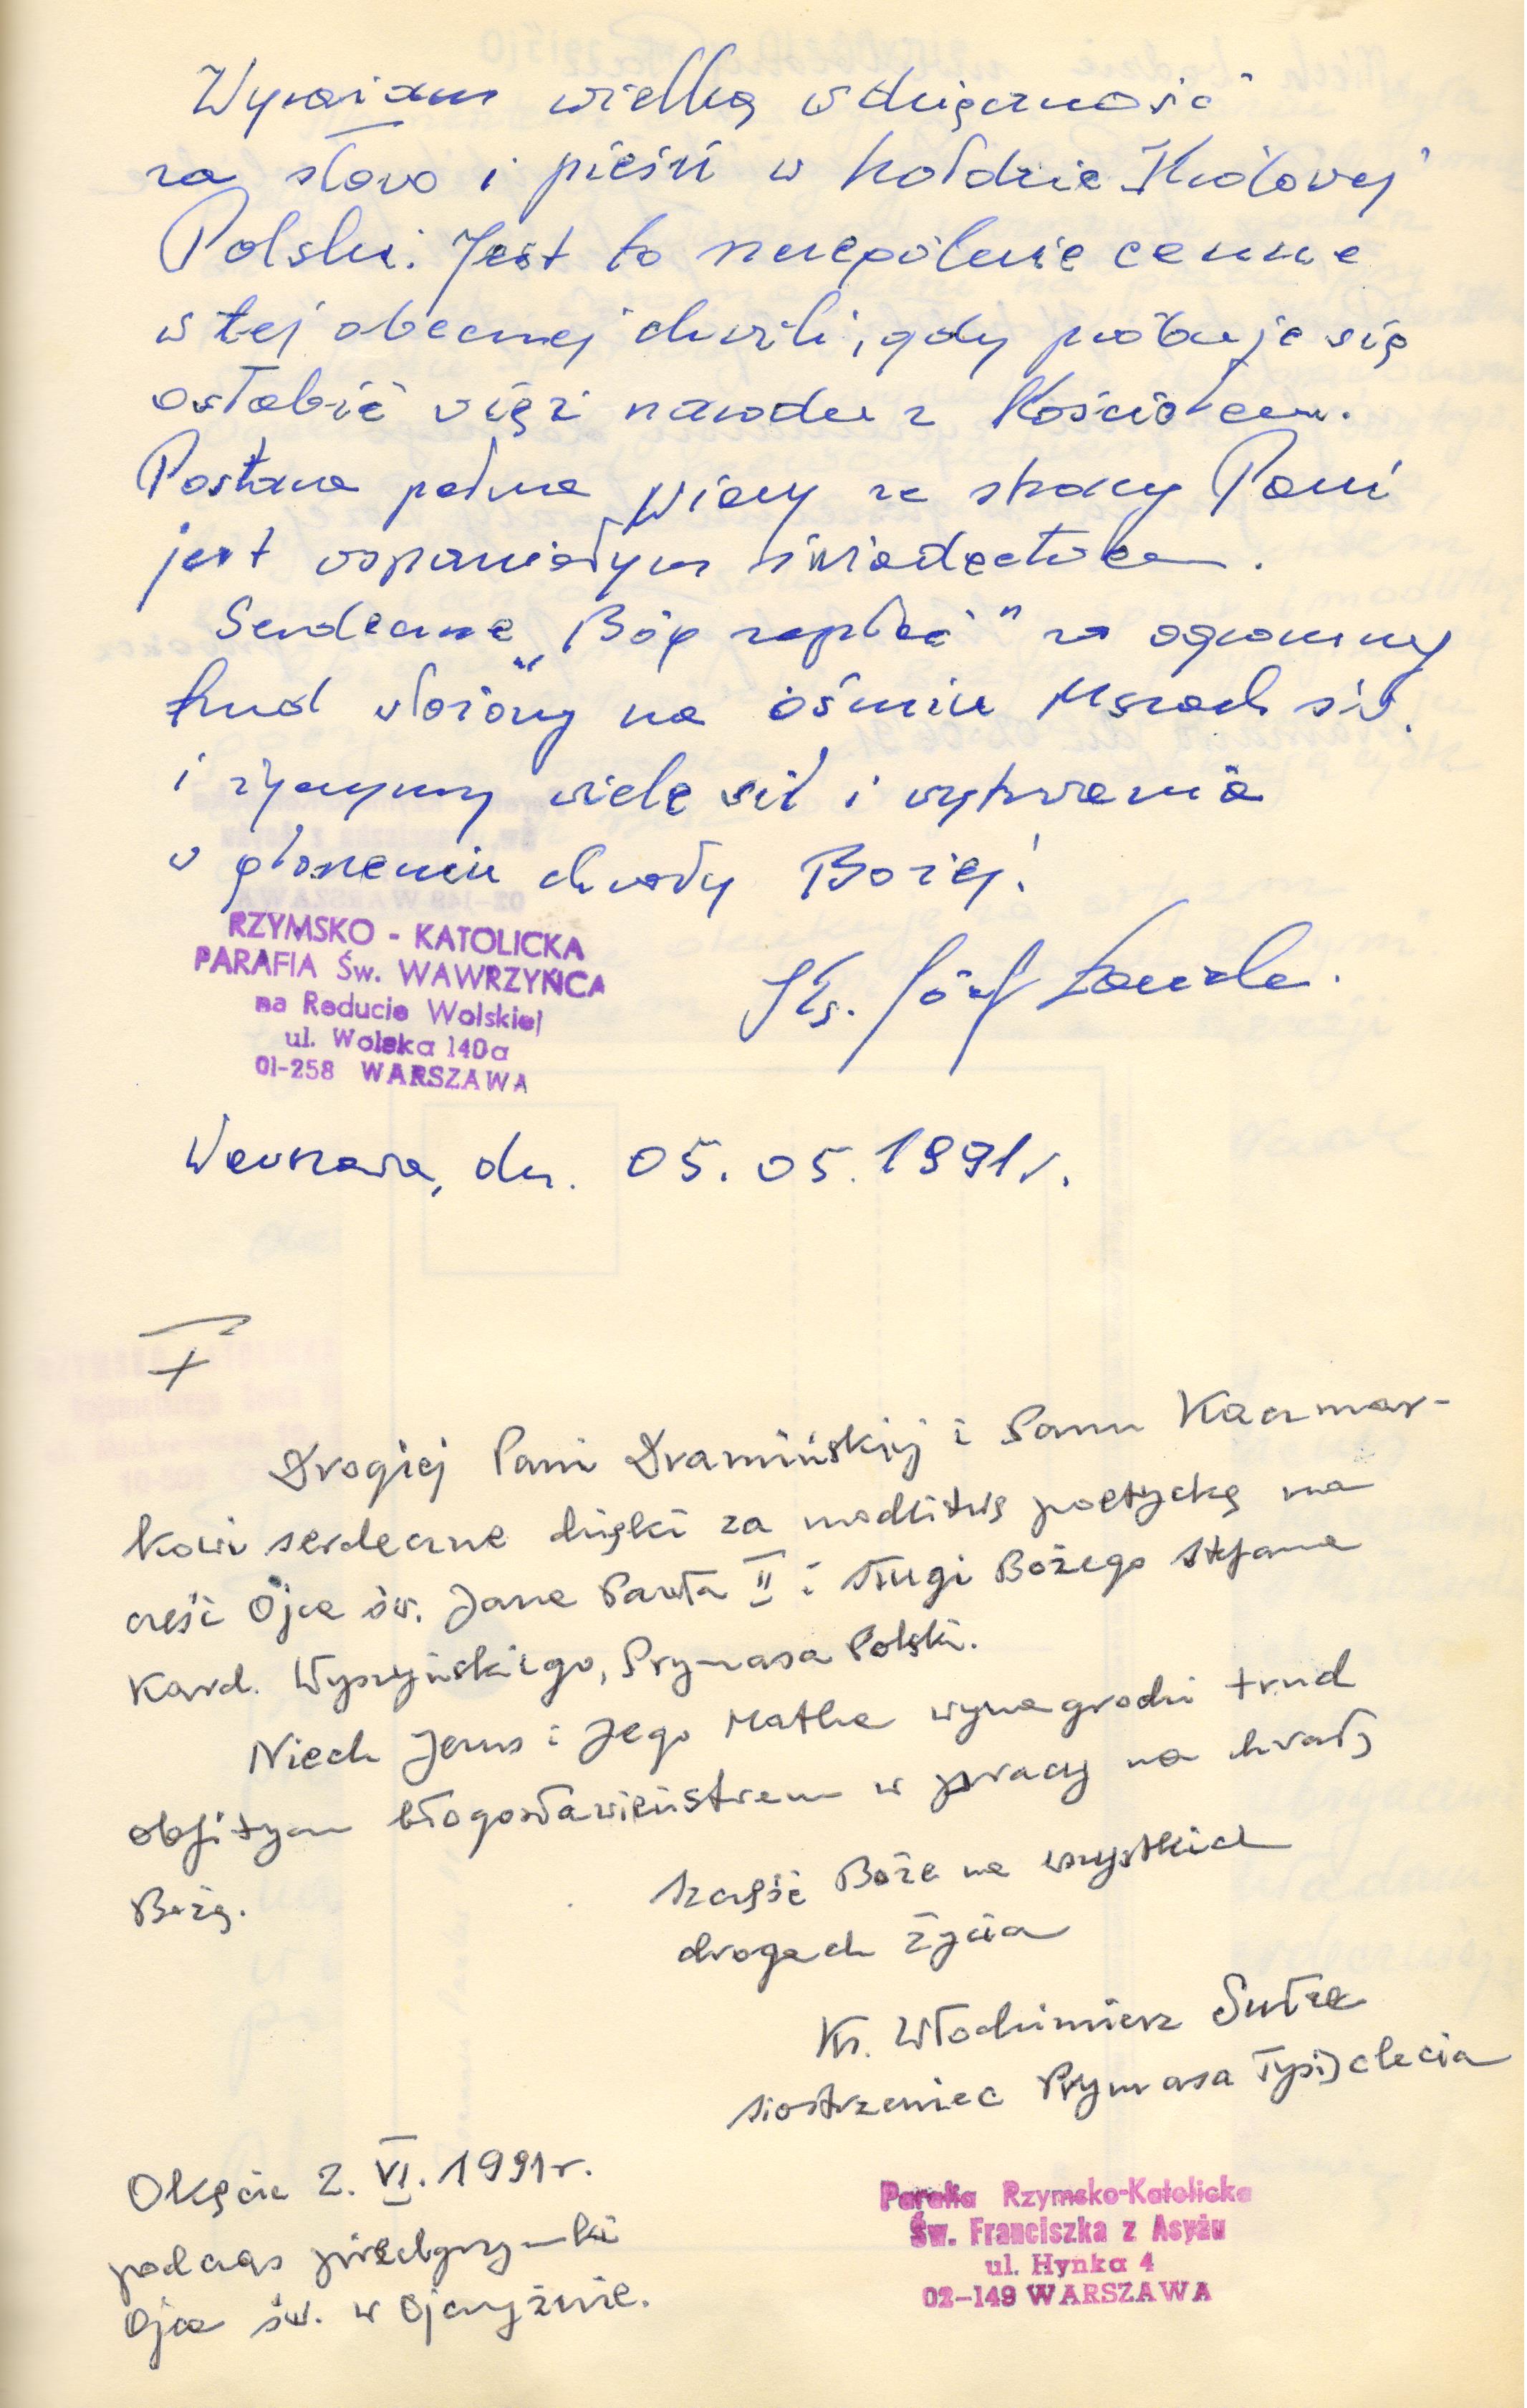 Wyrażam wielką wdzięczność
za słowo i pieśń w hołdzie Królowej
Polski. Jest to szczególnie cenne
w tej obecnej chwili, gdy próbuje się
osłabić więzi narodu z Kościołem.
Postawa pełna wiary ze strony Pani
jest wspaniałym świadectwem.
Serdeczne „Bóg zapłać" za ogromny
trud włożony na ośmiu Mszach św.
i życzymy wiele sił i wytrwania
w głoszeniu chwały Bożej!
RZYMSKO - KATOLICKA
PARAFIA Św. WAWRZYŃCA
na Reducie Wolskiej
ul. Wolska 140a
01-258 WARSZAWA
Ks. Józef
Warszawa, dn. 05.05.1991r.
Drogiej Pani Dramińskiej i Panu Kaczmar-
kowi serdeczne dzięki za modlitwę poetycką na
cześć Ojca św. Jana Pawła II i Sługi Bożego Stefana
Kard. Wyszyńskiego, Prymasa Polski.
Niech Jezus i Jego Matka wynagrodzi trud
obfitym błogosławieństwem w pracy na chwałę
Bożą.
Szczęść Boże na wszystkich
drogach życia
Ks. Włodzimierz
siostrzeniec Prymasa Tysiąclecia
Okęcie 2. VI. 1991r.
podczas pielgrzymki
Ojca św. w Ojczyźnie.
Parafia Rzymsko-Katolicka
Św. Franciszka z Asyżu
ul. Hynka 4
02-149 WARSZAWA